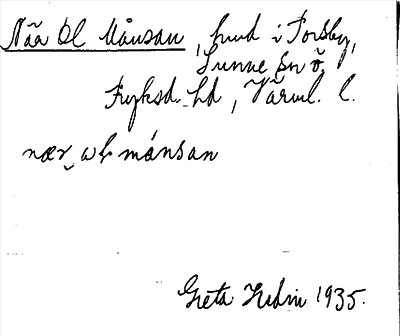 Näa bl Månsan, hmd i Torsby,
Sunne sn ö.
Fryksd. hd, Värml. l.
nær
månsan
Greta Hedin 1935.